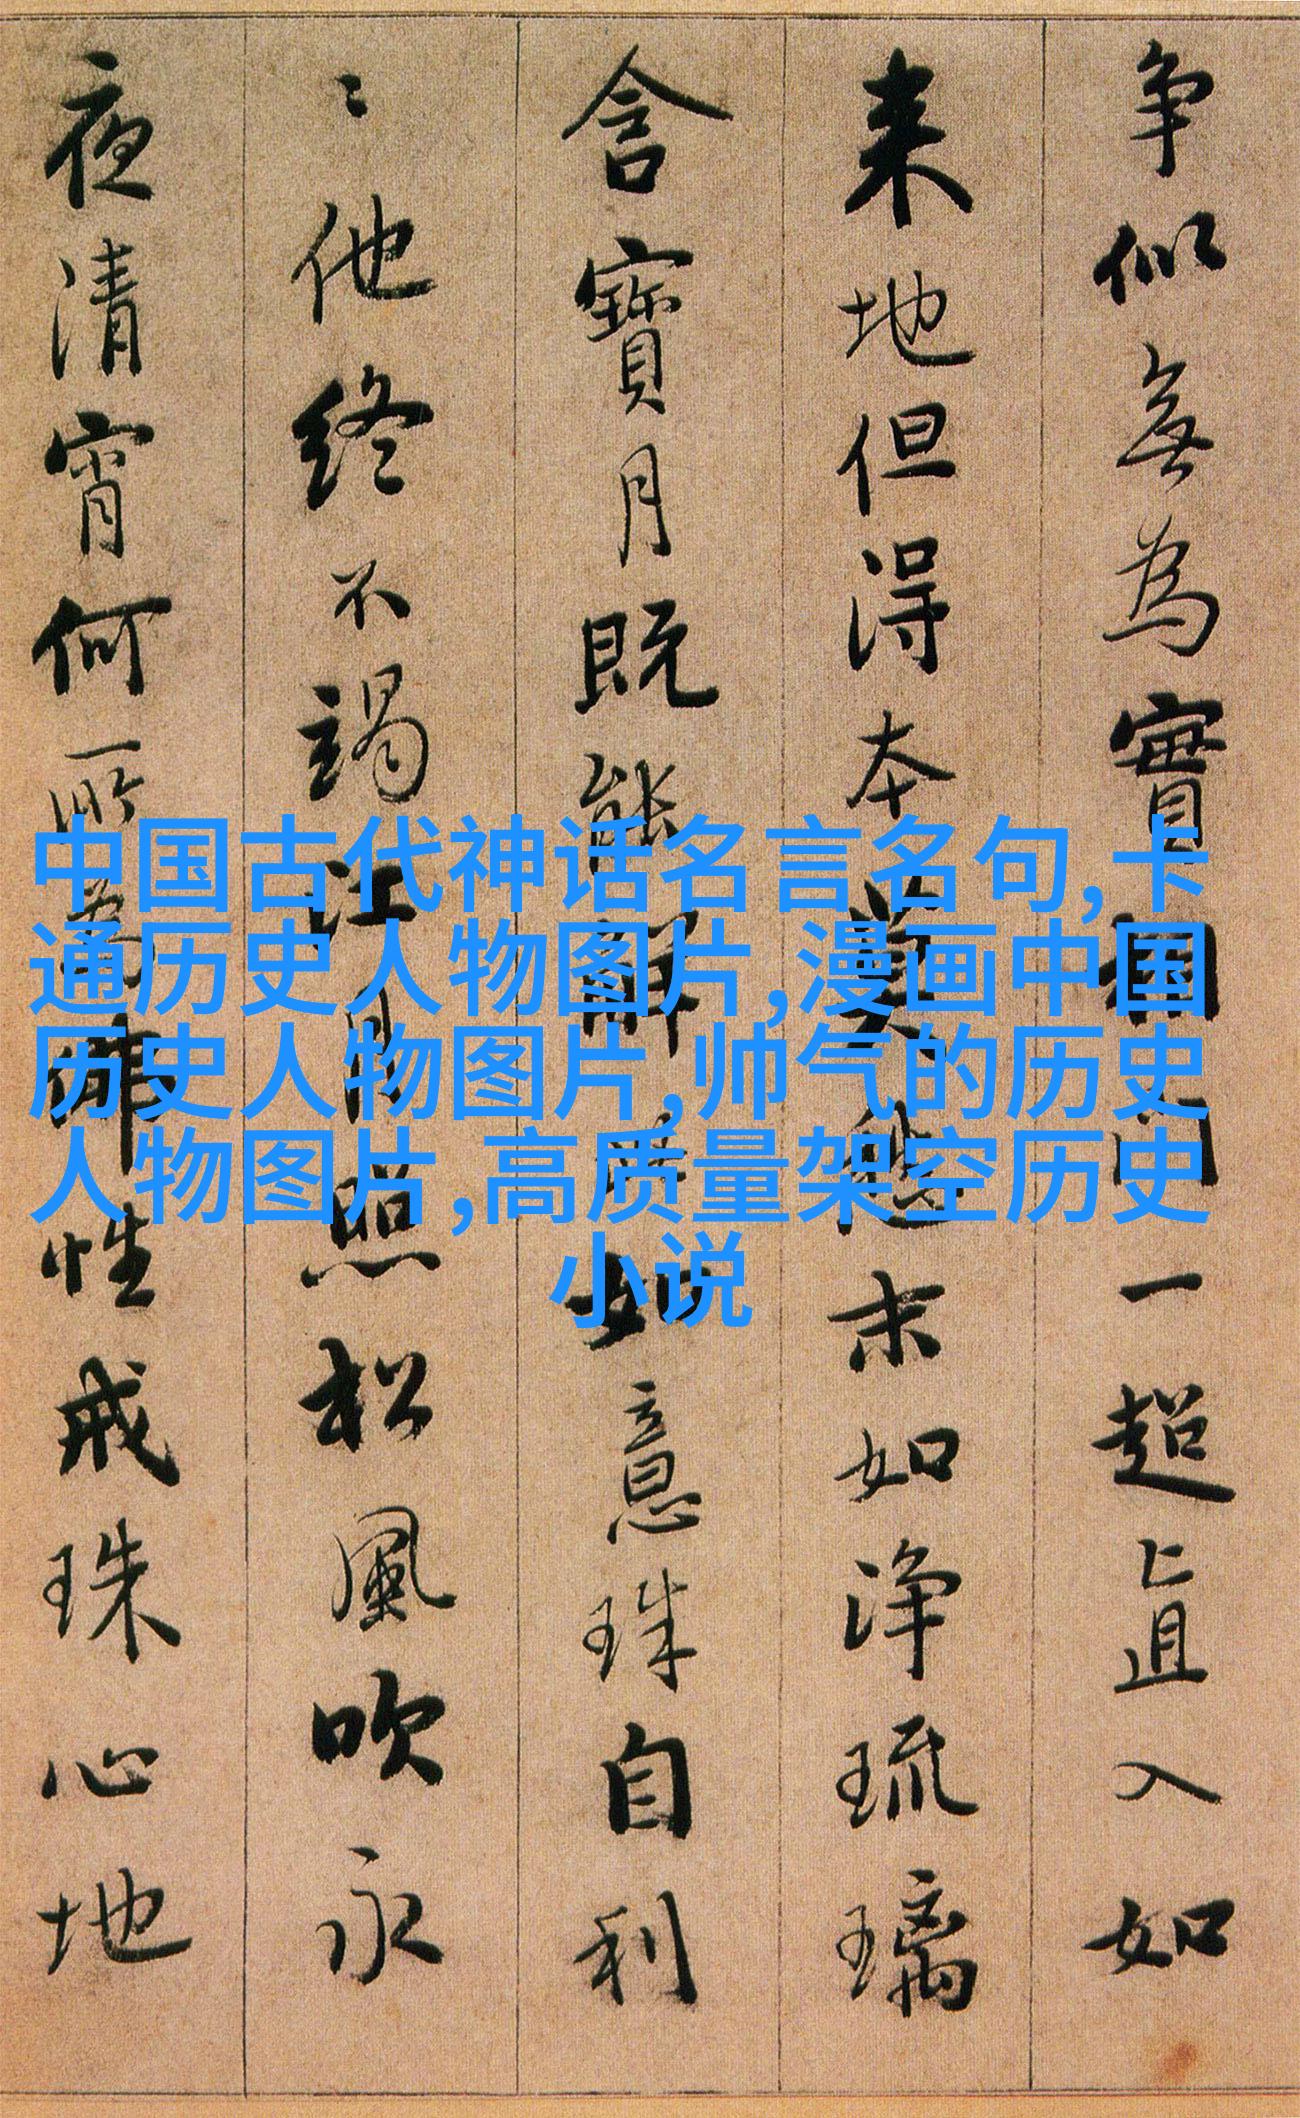 争似無為實相門一超直入如
来地但得本莫愁末如淨琉璃
含寶月既能解此如意珠自利
〻他終不竭江月照松風吹永
夜清宵何所為佛性戒珠心地
中国古代神话名言名句,卡
通历史人物图片,漫画中国
历史人物图片,帅气的历史
人物图片,高质量架空历史
小说